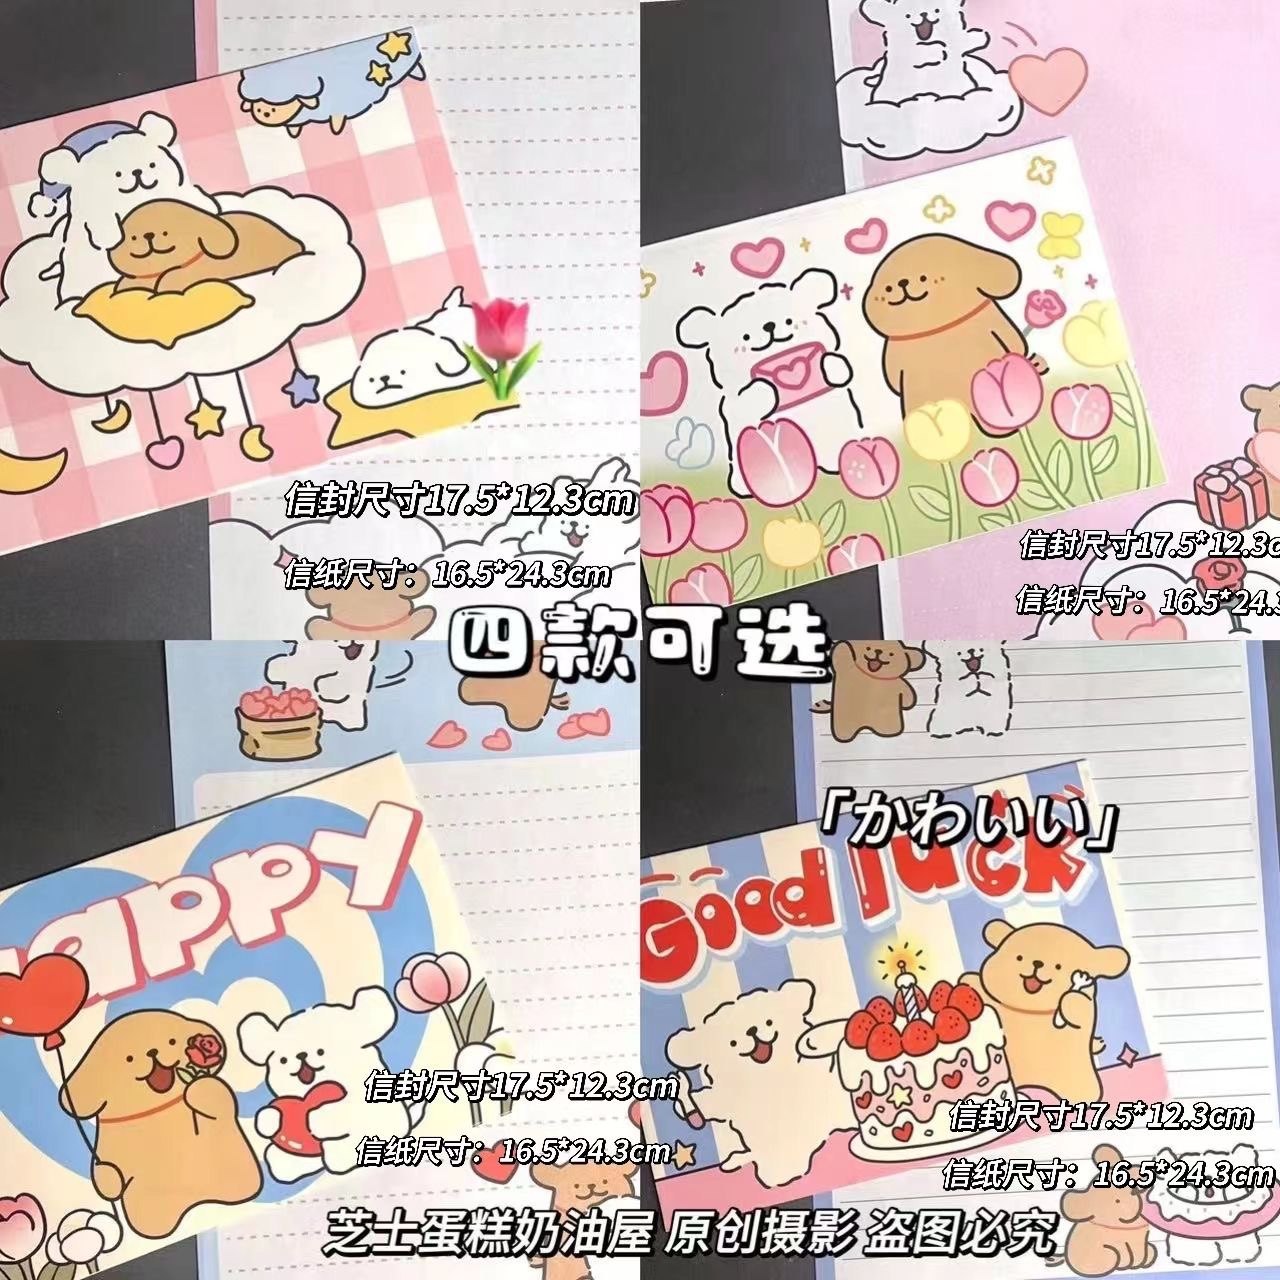 信封尺寸17.5*12.3cm
信纸尺寸：16.5*24.3cm
信封尺寸17.5*12.3c
信纸尺寸：16.5*24.3
四款可选
「かわいい」
appy
Good luck
信封尺寸17.5*12.3cm
信纸尺寸：16.5*24.3cm
信封尺寸17.5*12.3cm
信纸尺寸：16.5*24.3cm
芝士蛋糕奶油屋 原创摄影 盗图必究